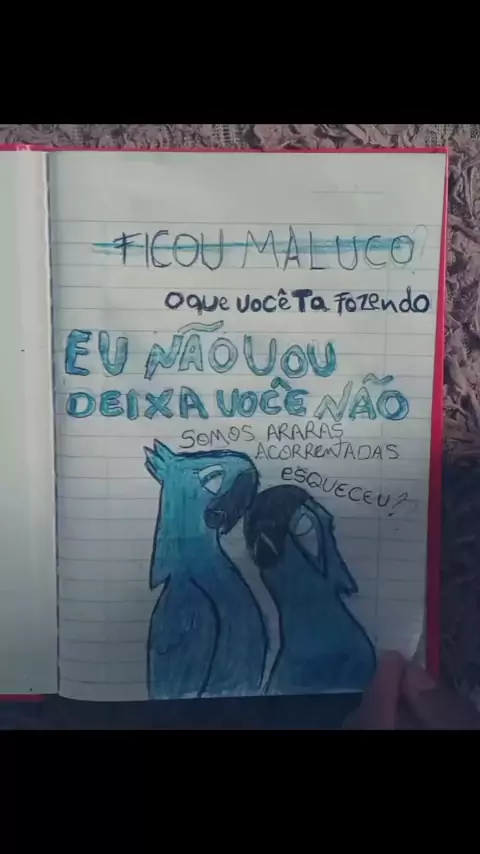 FICOU MALUCO?
O que você Ta Fozendo
EU NÃO VOU
DEIXA VOCÊ NÃO
SOMOS ARARAS
ACORRENTADAS
esqueceu?